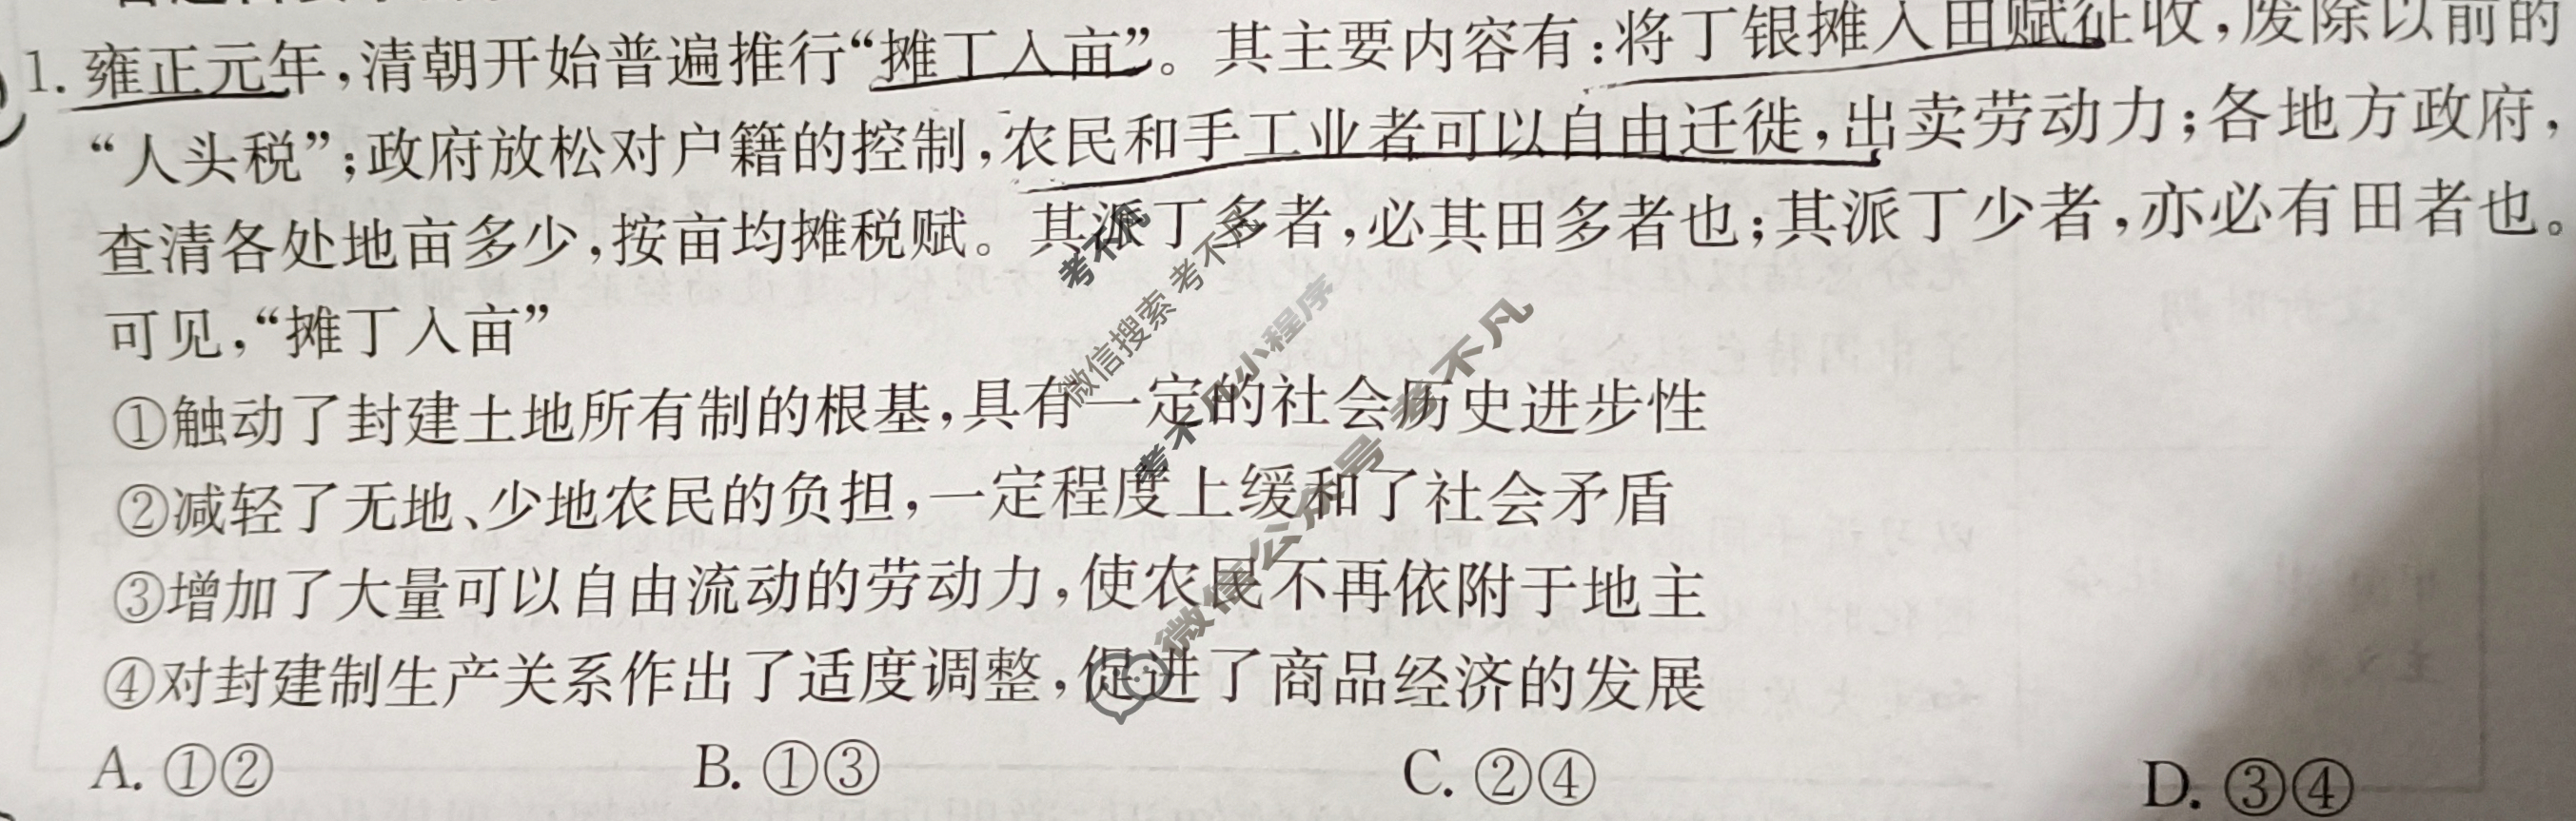 1. 雍正元年，清朝开始普遍推行“摊丁入亩”。其主要内容有：将丁银摊入田赋征收，废除以前的
“人头税”；政府放松对户籍的控制，农民和手工业者可以自由迁徙，出卖劳动力；各地方政府，
查清各处地亩多少，按亩均摊税赋。其派丁多者，必其田多者也；其派丁少者，亦必有田者也。
可见，“摊丁入亩”
①触动了封建土地所有制的根基，具有一定的社会历史进步性
②减轻了无地、少地农民的负担，一定程度上缓和了社会矛盾
③增加了大量可以自由流动的劳动力，使农民不再依附于地主
④对封建制生产关系作出了适度调整，促进了商品经济的发展
A. ①② B. ①③ C. ②④ D. ③④
考不凡
微信搜索 考不凡
考不凡小程序
微信公众号 考不凡